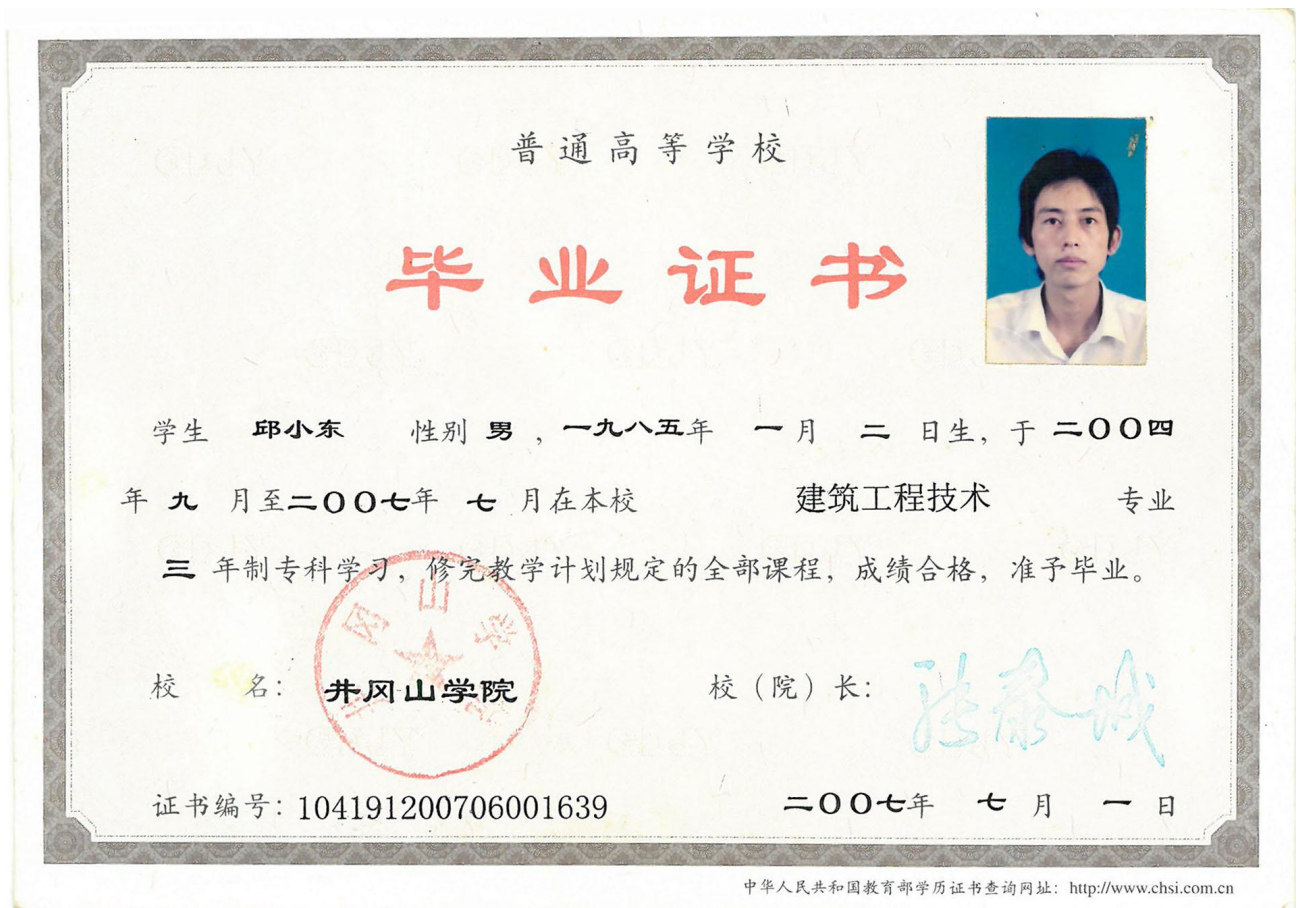 普通高等学校
毕业证书
学生 邱小东 性别 男 ,一九八五年 一月 二 日生, 于 二〇〇四
年 九 月至二〇〇七年 七 月在本校 建筑工程技术 专业
三 年制专科学习, 修完教学计划规定的全部课程, 成绩合格, 准予毕业。
井冈山学院
校 名: 井冈山学院 校（院）长: 张泰城
证书编号: 104191200706001639 二〇〇七年 七 月 一 日
中华人民共和国教育部学历证书查询网址: http://www.chsi.com.cn